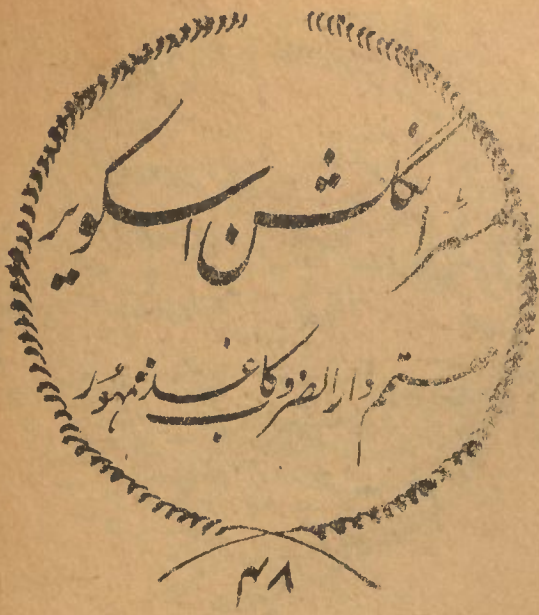 مسٹر انکشن اسکویر
مہتمم دار الضرب و کاغذ ممہور
۴۸